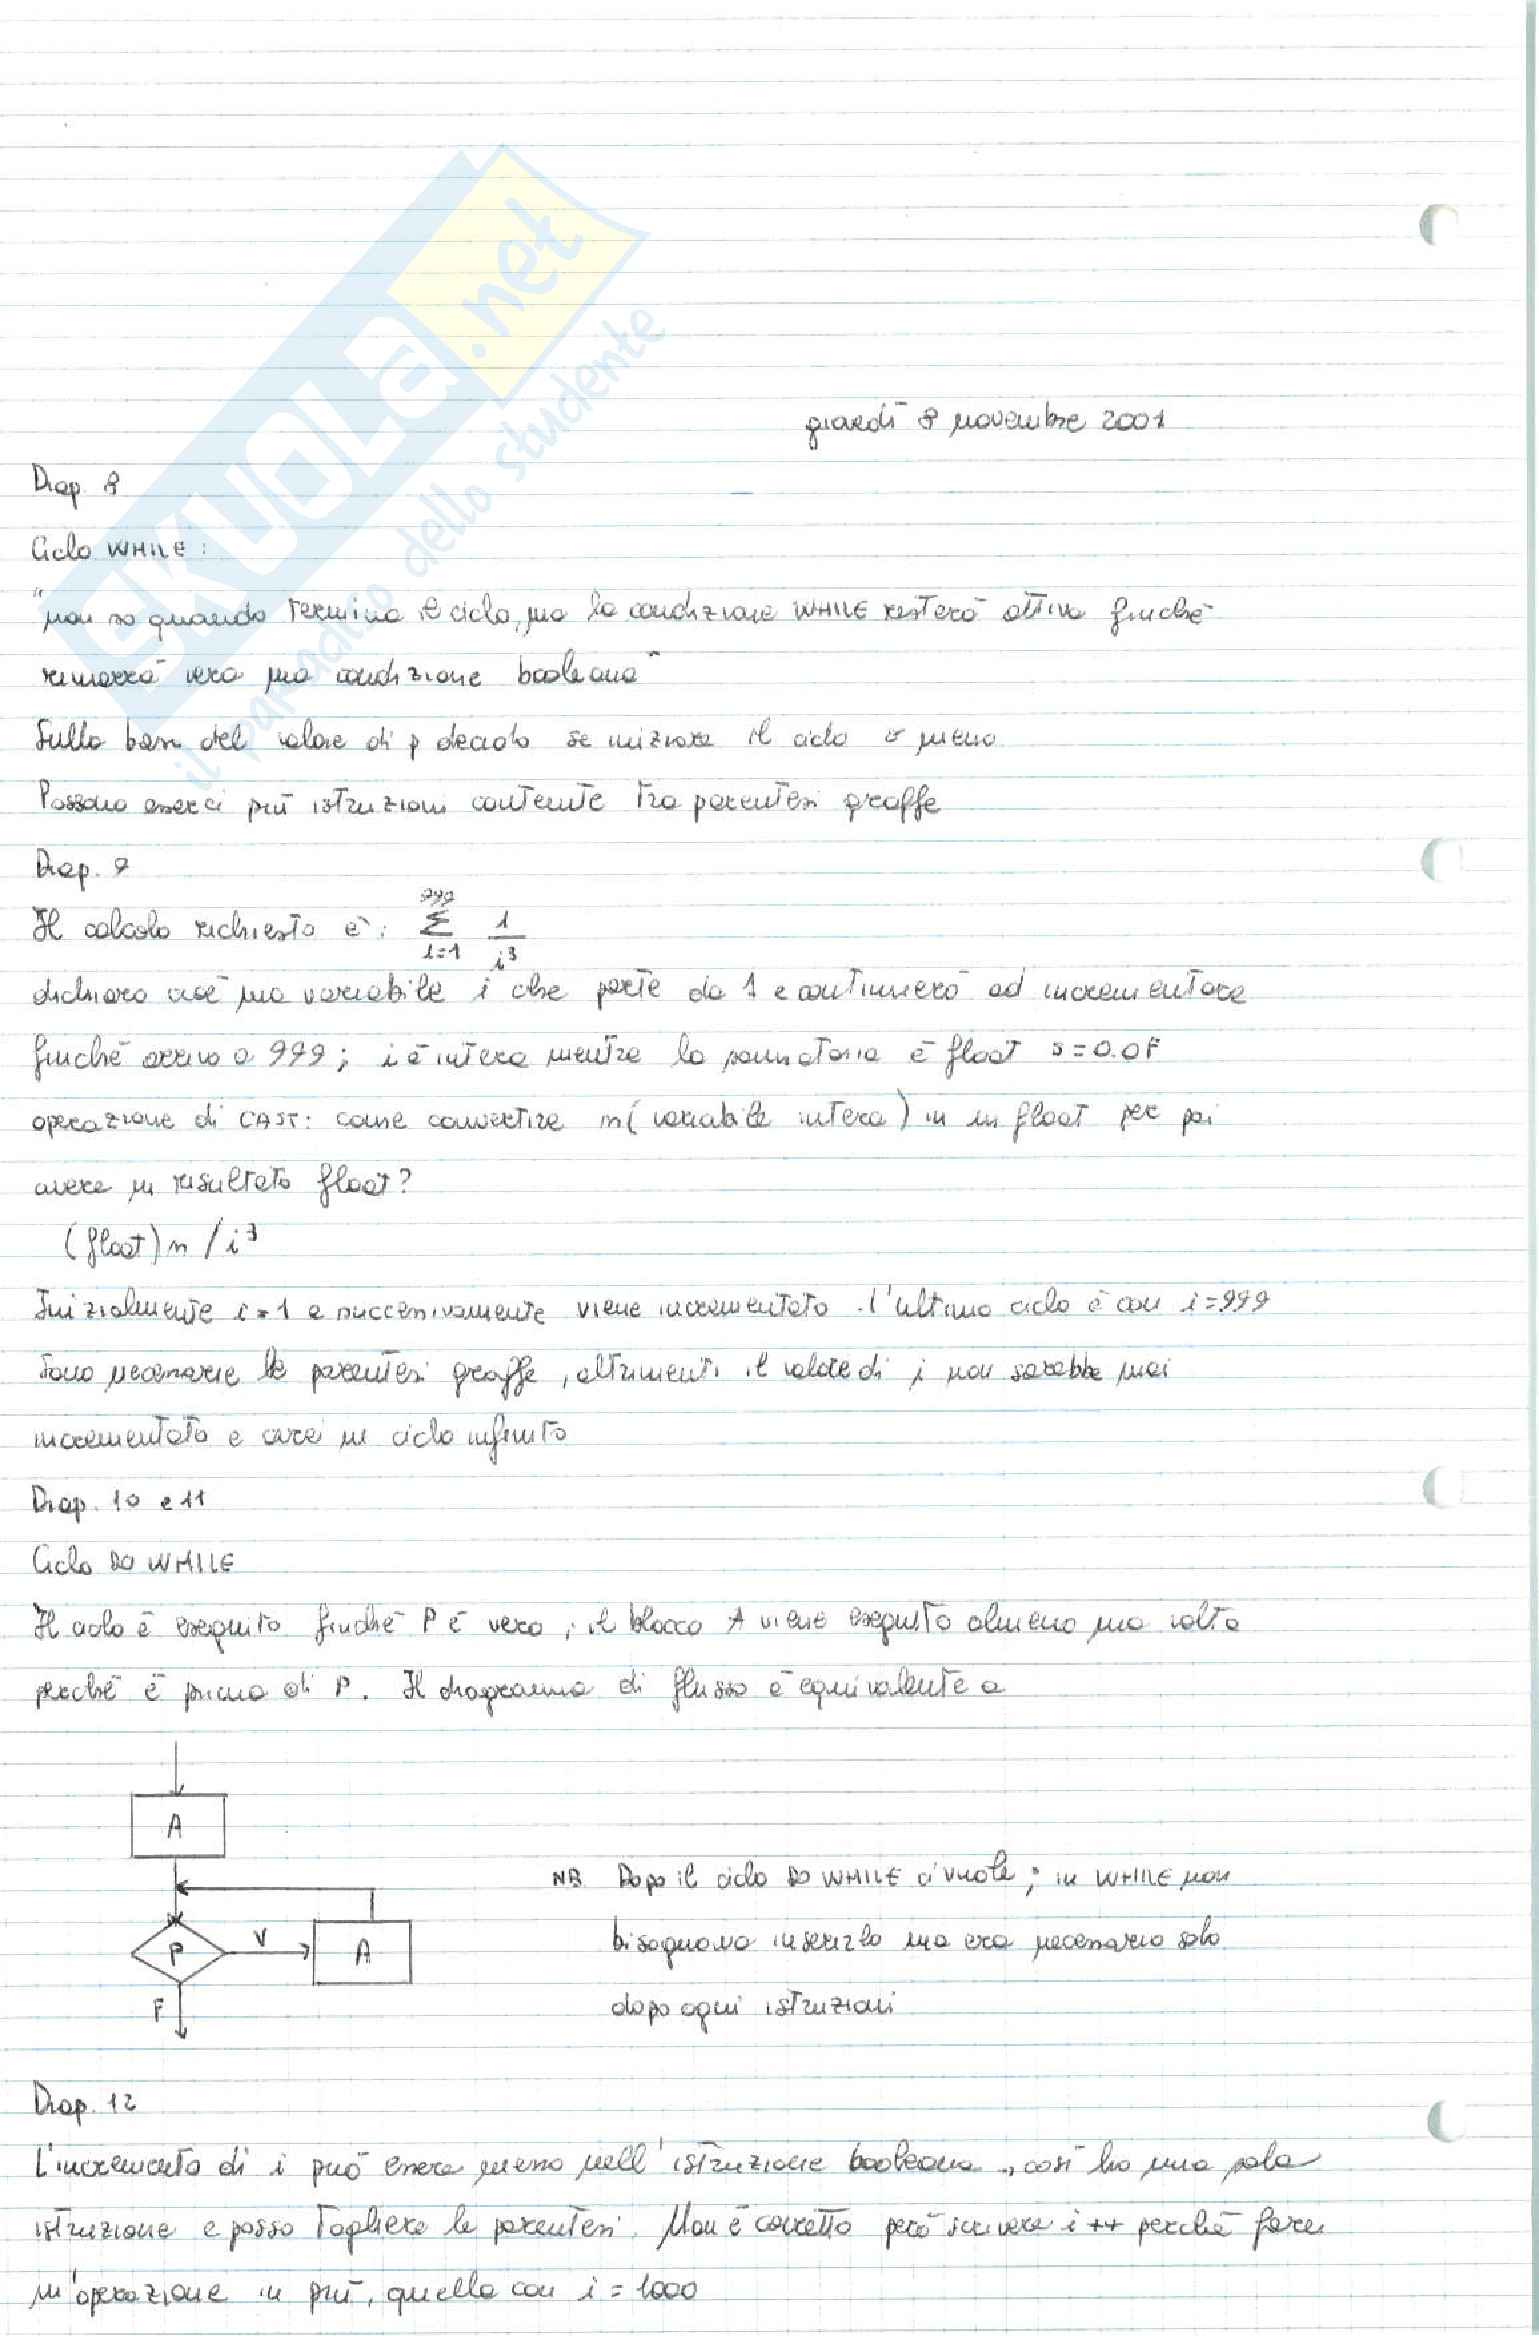 SKUOLA.net
il paradiso dello studente
giovedì 8 novembre 2001
Diap. 8
Ciclo WHILE:
"non so quando termina il ciclo, ma la condizione WHILE resterà attiva finché
rimarrà vera una condizione booleana"
Sulla base del valore di p decido se iniziare il ciclo o meno
Possono esserci più istruzioni contenute tra parentesi graffe
Diap. 9
Il calcolo richiesto è: 999 Σ i=1 1/i³
dichiaro cioè una variabile i che parte da 1 e continuerò ad incrementare
finché arrivo a 999; i è intera mentre la sommatoria è float s=0.0F
operazione di CAST: come convertire n (variabile intera) in un float per poi
avere un risultato float?
(float) n / i³
Inizialmente i=1 e successivamente viene incrementato. L'ultimo ciclo è con i=999
Sono necessarie le parentesi graffe, altrimenti il valore di i non sarebbe mai
incrementato e avrei un ciclo infinito
Diap. 10 e 11
Ciclo DO WHILE
Il ciclo è eseguito finché P è vero, il blocco A viene eseguito almeno una volta
perché è prima di P. Il diagramma di flusso è equivalente a
A
P
V
A
F
NB Dopo il ciclo DO WHILE ci vuole ; in WHILE non
bisognava inserirlo ma era necessario solo
dopo ogni istruzioni
Diap. 12
L'incremento di i può essere messo nell'istruzione booleana, così ho una sola
istruzione e posso togliere le parentesi. Non è corretto però scrivere i++ perché farei
un'operazione in più, quella con i = 1000